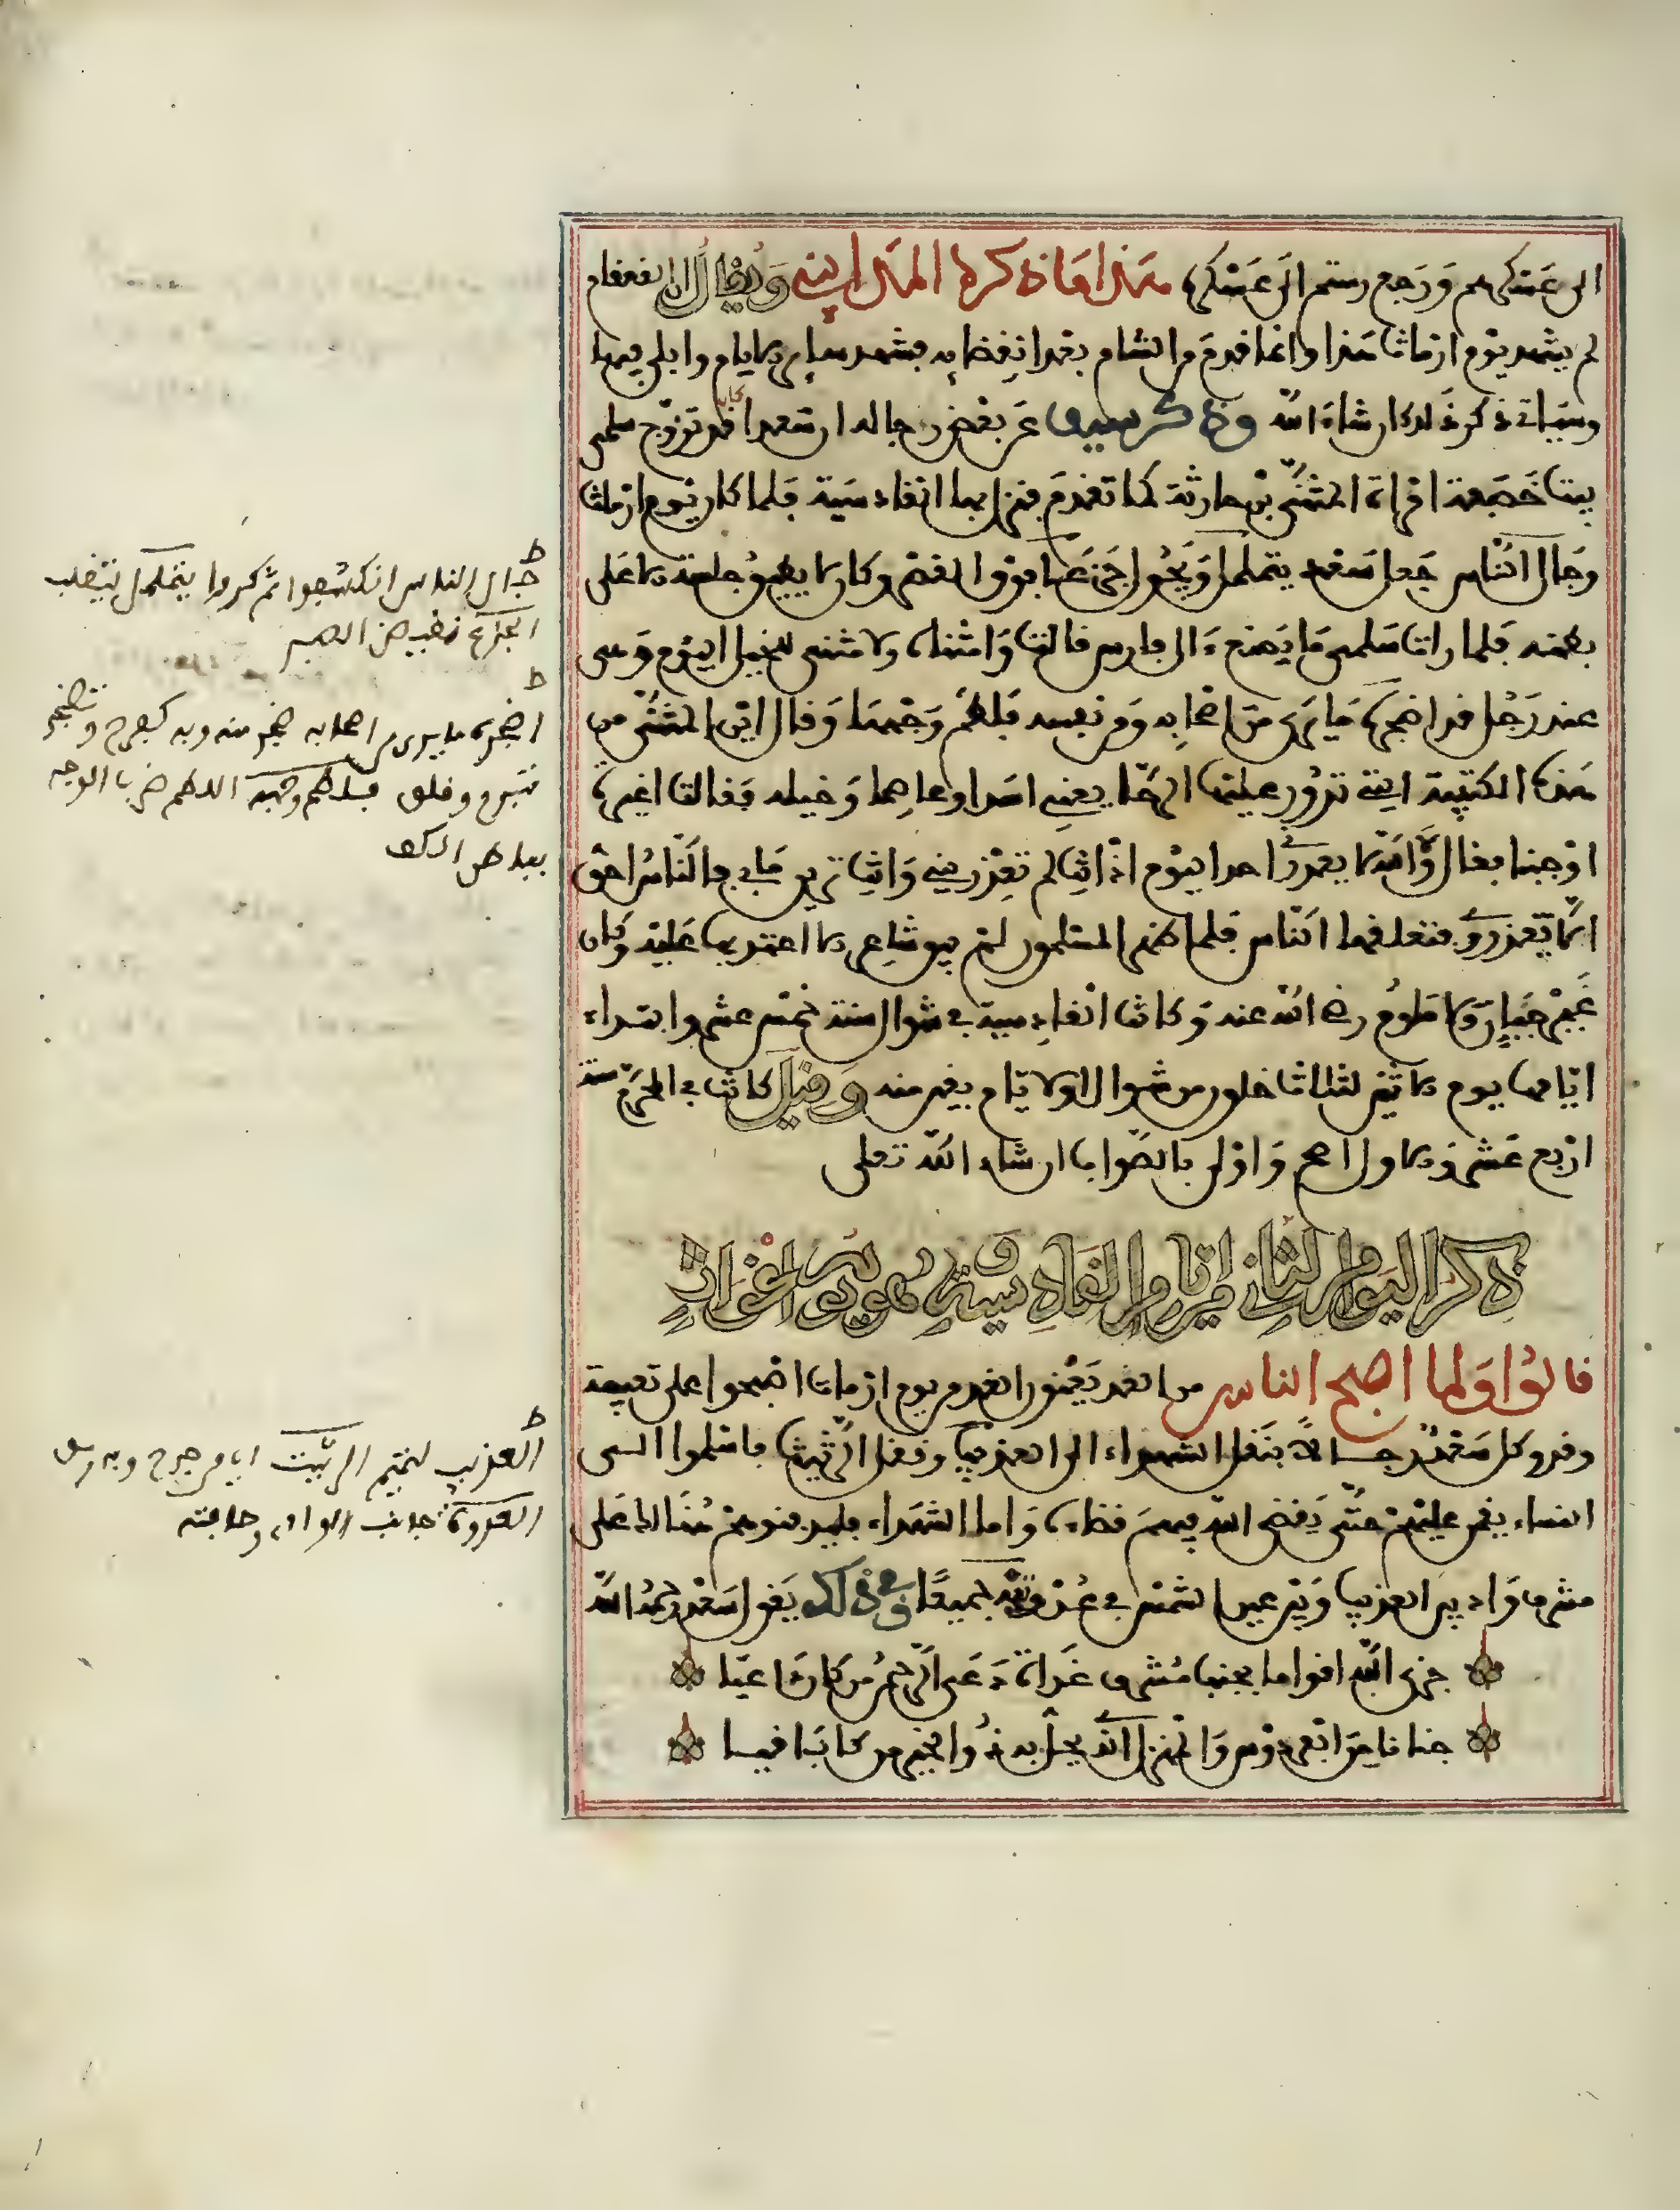 الى عسكرهم ورجع رستم الى عسكره هذا ما ذكره المدايني ويقال ان القعقاع
لم يشهد يوم ارماث هذا وانما قدم من الشام بعد انقضايه فشهد ساير الايام وابلى فيها
وسياتي ذكر ذلك ان شاء الله وذكر سيف عن بعض رجاله ان سعدا كان قد تزوج سلمى
بنت خصفة امراة المثنى بن حارثة كما تقدم فنزل بها القادسية فلما كان يوم ارماث
وجال الناس جعل سعد يتململ ويحول جزعا فوق القصر وكان لا يطيق جلسة الا على
بطنه فلما رات سلمى ما يصنع ءال فارس قالت وامثناه ولا مثنى للخيل اليوم وهي
عند رجل قد اضجره ما يرى من اصحابه ومن نفسه فلطم وجهها وقال اين المثنى من
هذه الكتيبة التي تدور عليها الرحا يعني اسدا وعاصما وخيله فقالت اغيرة
وجبنا فقال والله لا يعذرني احد اليوم اذ انت لم تعذريني وانت ترين ما بي فالناس احق
الا يعذروني فتعلقها الناس فلما ظهر المسلمون لم يبق شاعر الا اعتد بها عليه وكان
غير جبان ولا ملوم رضي الله عنه وكانت القادسية في شوال سنة خمس عشر وابتداء
ايامها يوم الاثنين لثلاث خلون من شوال او لايام بقين منه وقيل كانت في المحرم سنة
اربع عشرة والاول اصح واولى بالصواب ان شاء الله تعلى
ذكر اليوم الثاني من ايام القادسية وهو يوم اغواث
قالوا ولما اصبح الناس من الغد يعنون الغد من يوم ارماث اصبحوا على تعبية
وقد وكل سعد رجالا بنقل الشهداء الى العذيب ونقل الرثيث فاسلموا الى
النساء يقمن عليهم حتى يقضي الله فيهم قضاءه واما الشهداء فليدفنوهم هنالك على
مشرق واد بين العذيب وبين عين الشمس في عدوتيه جميعا وفي ذلك يقول سعد رحمه الله
جزى الله اقواما بجنب مشرق غداة دعى الرحمن من كان داعيا
جنانا من الفردوس والمنزل الذي يحل به ذو الخير من كان باقيا
ط
جال الناس انكشفوا ثم كروا يتململ يتقلب
الجزع نقيض الصبر
ط
اضجره ما يرى من اصحابه ضجر منه وبه كفرح وتضجر
تبرم وقلق فلطم وجهه اللطم ضرب الوجه
بباطن الكف
ط
العذيب لتميم الرثيث اي من جرح وبه رمق
العدوة جانب الوادي وحافته